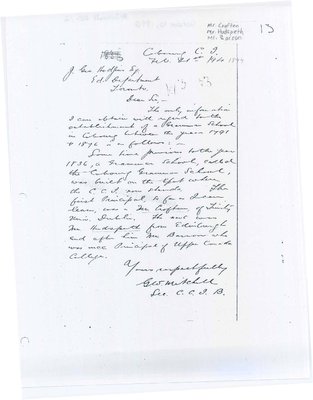 Mr. Crofton
Mr. Hudspeth
Mr. Barron
13
Cobourg C. I.
Feb. 21st 1899
J. Geo Hodgins Esq
Ed. Department
Toronto
Dear Sir,-
The only information
I can obtain with regard to the
establishment of a Grammar School
in Cobourg between the years 1791
& 1876 is as follows:-
Some time previous to the year
1836, a Grammar School, called
the "Cobourg Grammar School,"
was built on the spot where
the C.C.I. now stands. The
first Principal, so far as I can
learn, was a Mr Crofton, of Trinity
Univ. Dublin. The next was
Mr Hudspeth from Edinburgh
and after him Mr Barron who
was once Principal of Upper Canada
College.
Yours respectfully
Mitchell
Sec. C. C. I. B.